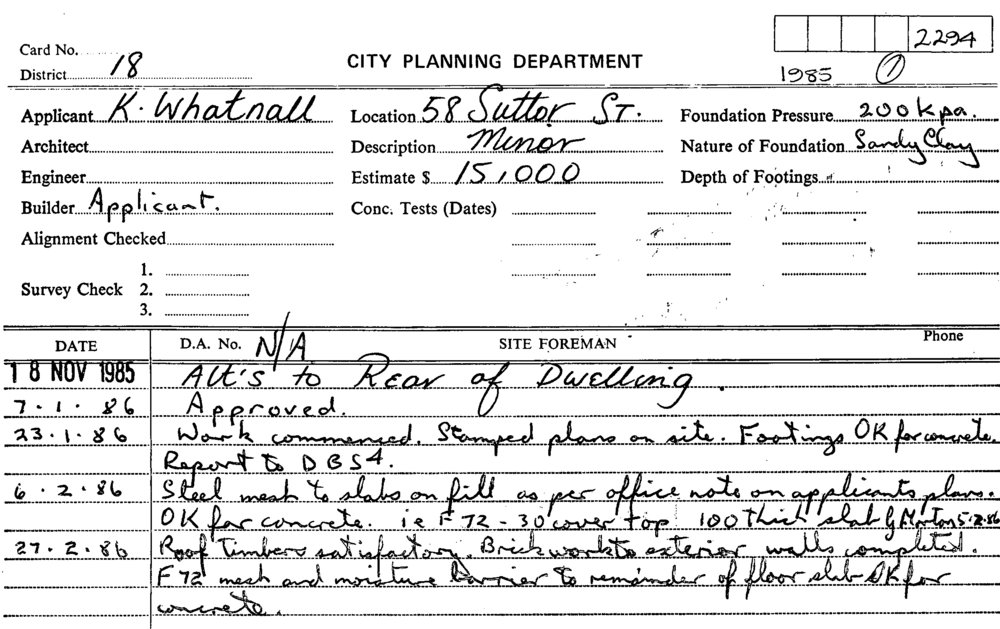 2294
Card No.
District 18
CITY PLANNING DEPARTMENT
1985 1
Applicant K. Whatnall
Location 58 Suttor ST.
Foundation Pressure 200 kpa.
Architect
Description Minor
Nature of Foundation Sandy Clay
Engineer
Estimate $ 15,000
Depth of Footings
Builder Applicant.
Conc. Tests (Dates)
Alignment Checked
1.
Survey Check 2.
3.
DATE D.A. No. N/A SITE FOREMAN Phone
18 NOV 1985 Alt's to Rear of Dwelling.
7.1.86 Approved.
23.1.86 Work commenced. Stamped plans on site. Footings OK for concrete.
Report to DBS4.
6.2.86 Steel mesh to slabs on fill as per office note on applicants plans.
OK for concrete. ie F72 - 30 cover top 100 thick slab G Morton 5.2.86
27.2.86 Roof Timbers satisfactory. Brickwork to exterior walls completed.
F72 mesh and moisture barrier to remainder of floor slab OK for
concrete.